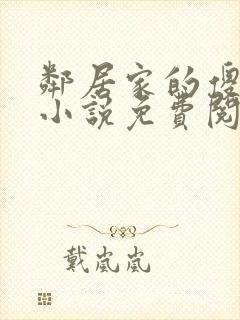 鄰居家的傻
小說免費閱
戴嵐嵐